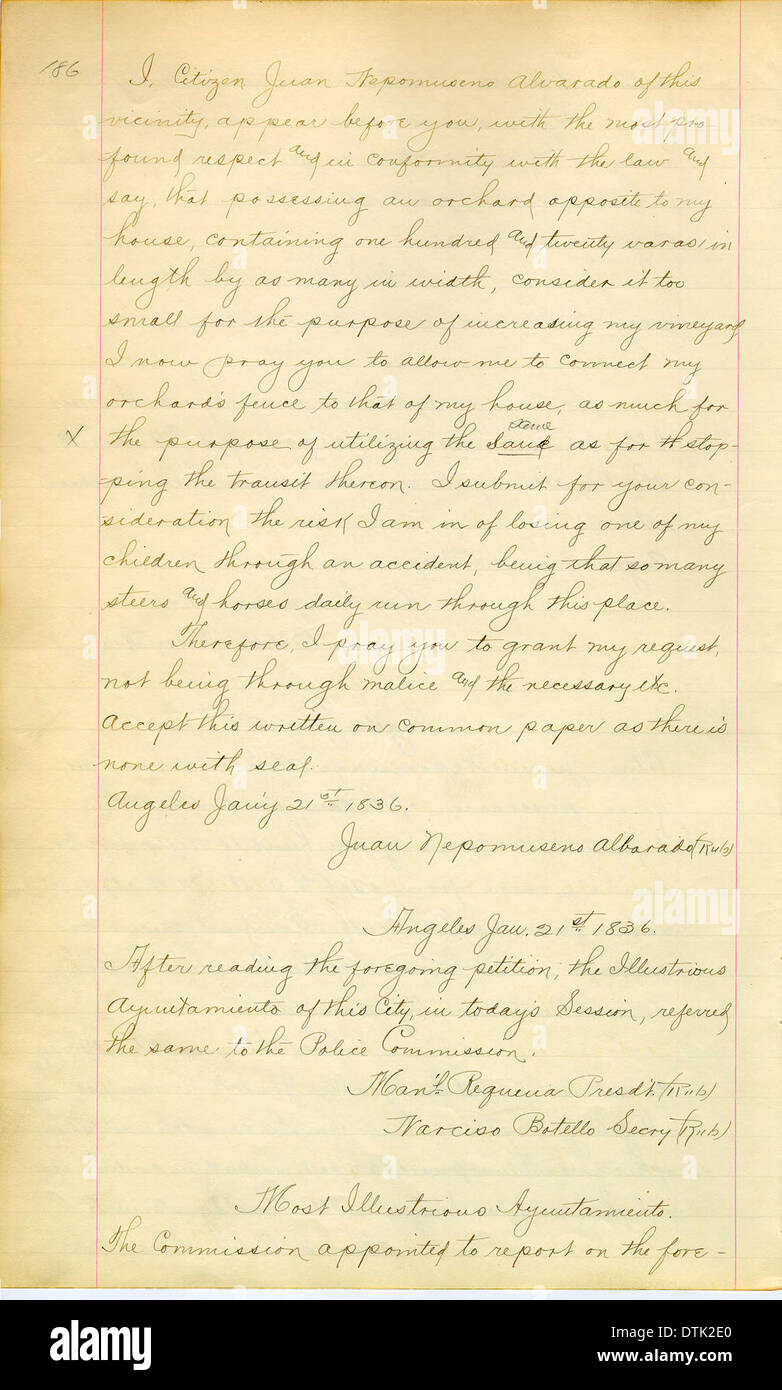 186
I, Citizen Juan Nepomuseno Alvarado of this
vicinity, appear before you, with the most pro-
found respect and in conformity with the law and
say, that possessing an orchard opposite to my
house, containing one hundred and twenty varas in
length by as many in width, consider it too
small for the purpose of increasing my vineyard
I now pray you to allow me to connect my
orchard's fence to that of my house, as much for
same
X the purpose of utilizing the as for stop-
-ping the transit thereon. I submit for your con-
sideration the risk I am in of losing one of my
children through an accident, being that so many
steers and horses daily run through this place.
Therefore, I pray you to grant my request,
not being through malice and the necessary etc.
Accept this written on common paper as there is
none with seal.
Angeles Jan'y 21st 1836.
Juan Nepomuseno Albarado (Rub)
Angeles Jan. 21st 1836.
After reading the foregoing petition, the Illustrious
Ayuntamiento of this City, in today's Session, referred
the same to the Police Commission.
Man'l Requena Presdt. (Rub)
Narciso Botello Secry (Rub)
Most Illustrious Ayuntamiento.
The Commission appointed to report on the fore-
a alamy
alamy
Image ID: DTK2E0
www.alamy.com